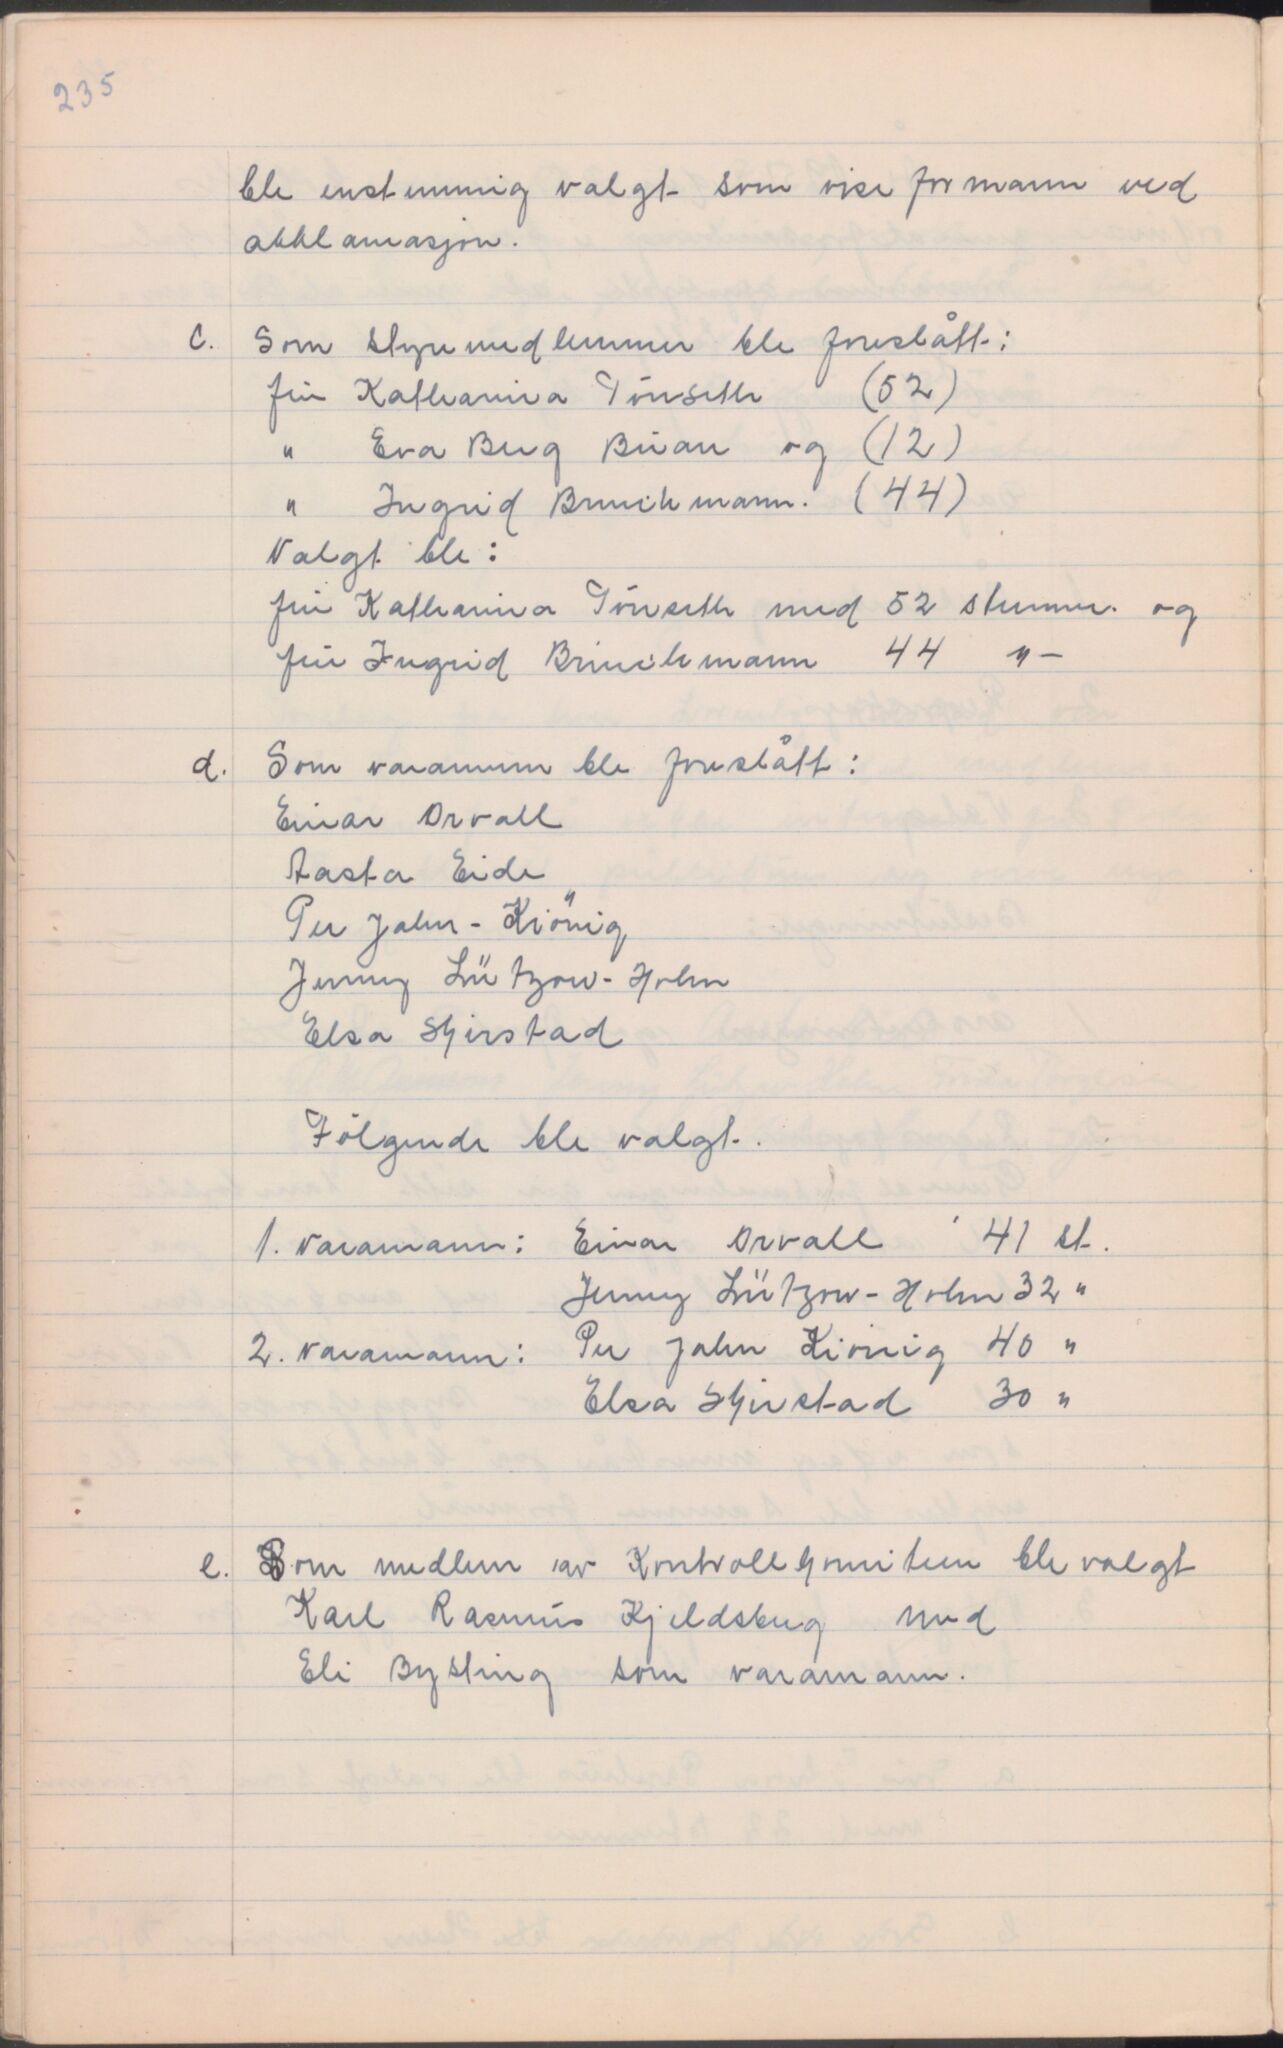 235
ble enstemmig valgt som vise formann ved
akklamasjon.
c. Som styremedlemmer ble foreslått:
frü Katharina Tönseth (52)
" Eva Berg Brüan og (12)
" Ingrid Brinchmann. (44)
Valgt ble:
frü Katharina Tönseth med 52 stemmer og
frü Ingrid Brinchmann 44 "-
d. Som varamenn ble foreslått:
Einar Orvall
Aasta Eide
Per Jahn-Kiönig
Jenny Lützow-Holm
Elsa Skirstad
Følgende ble valgt.
1. varamann: Einar Orvall 41 st.
Jenny Lützow-Holm 32 "
2. varamann: Per Jahn Kiönig 40 "
Elsa Skirstad 30 "
e. Som medlem av Kontrollkomiteen ble valgt
Karl Rasmüs Kjeldsberg med
Eli Bysting som varamann.